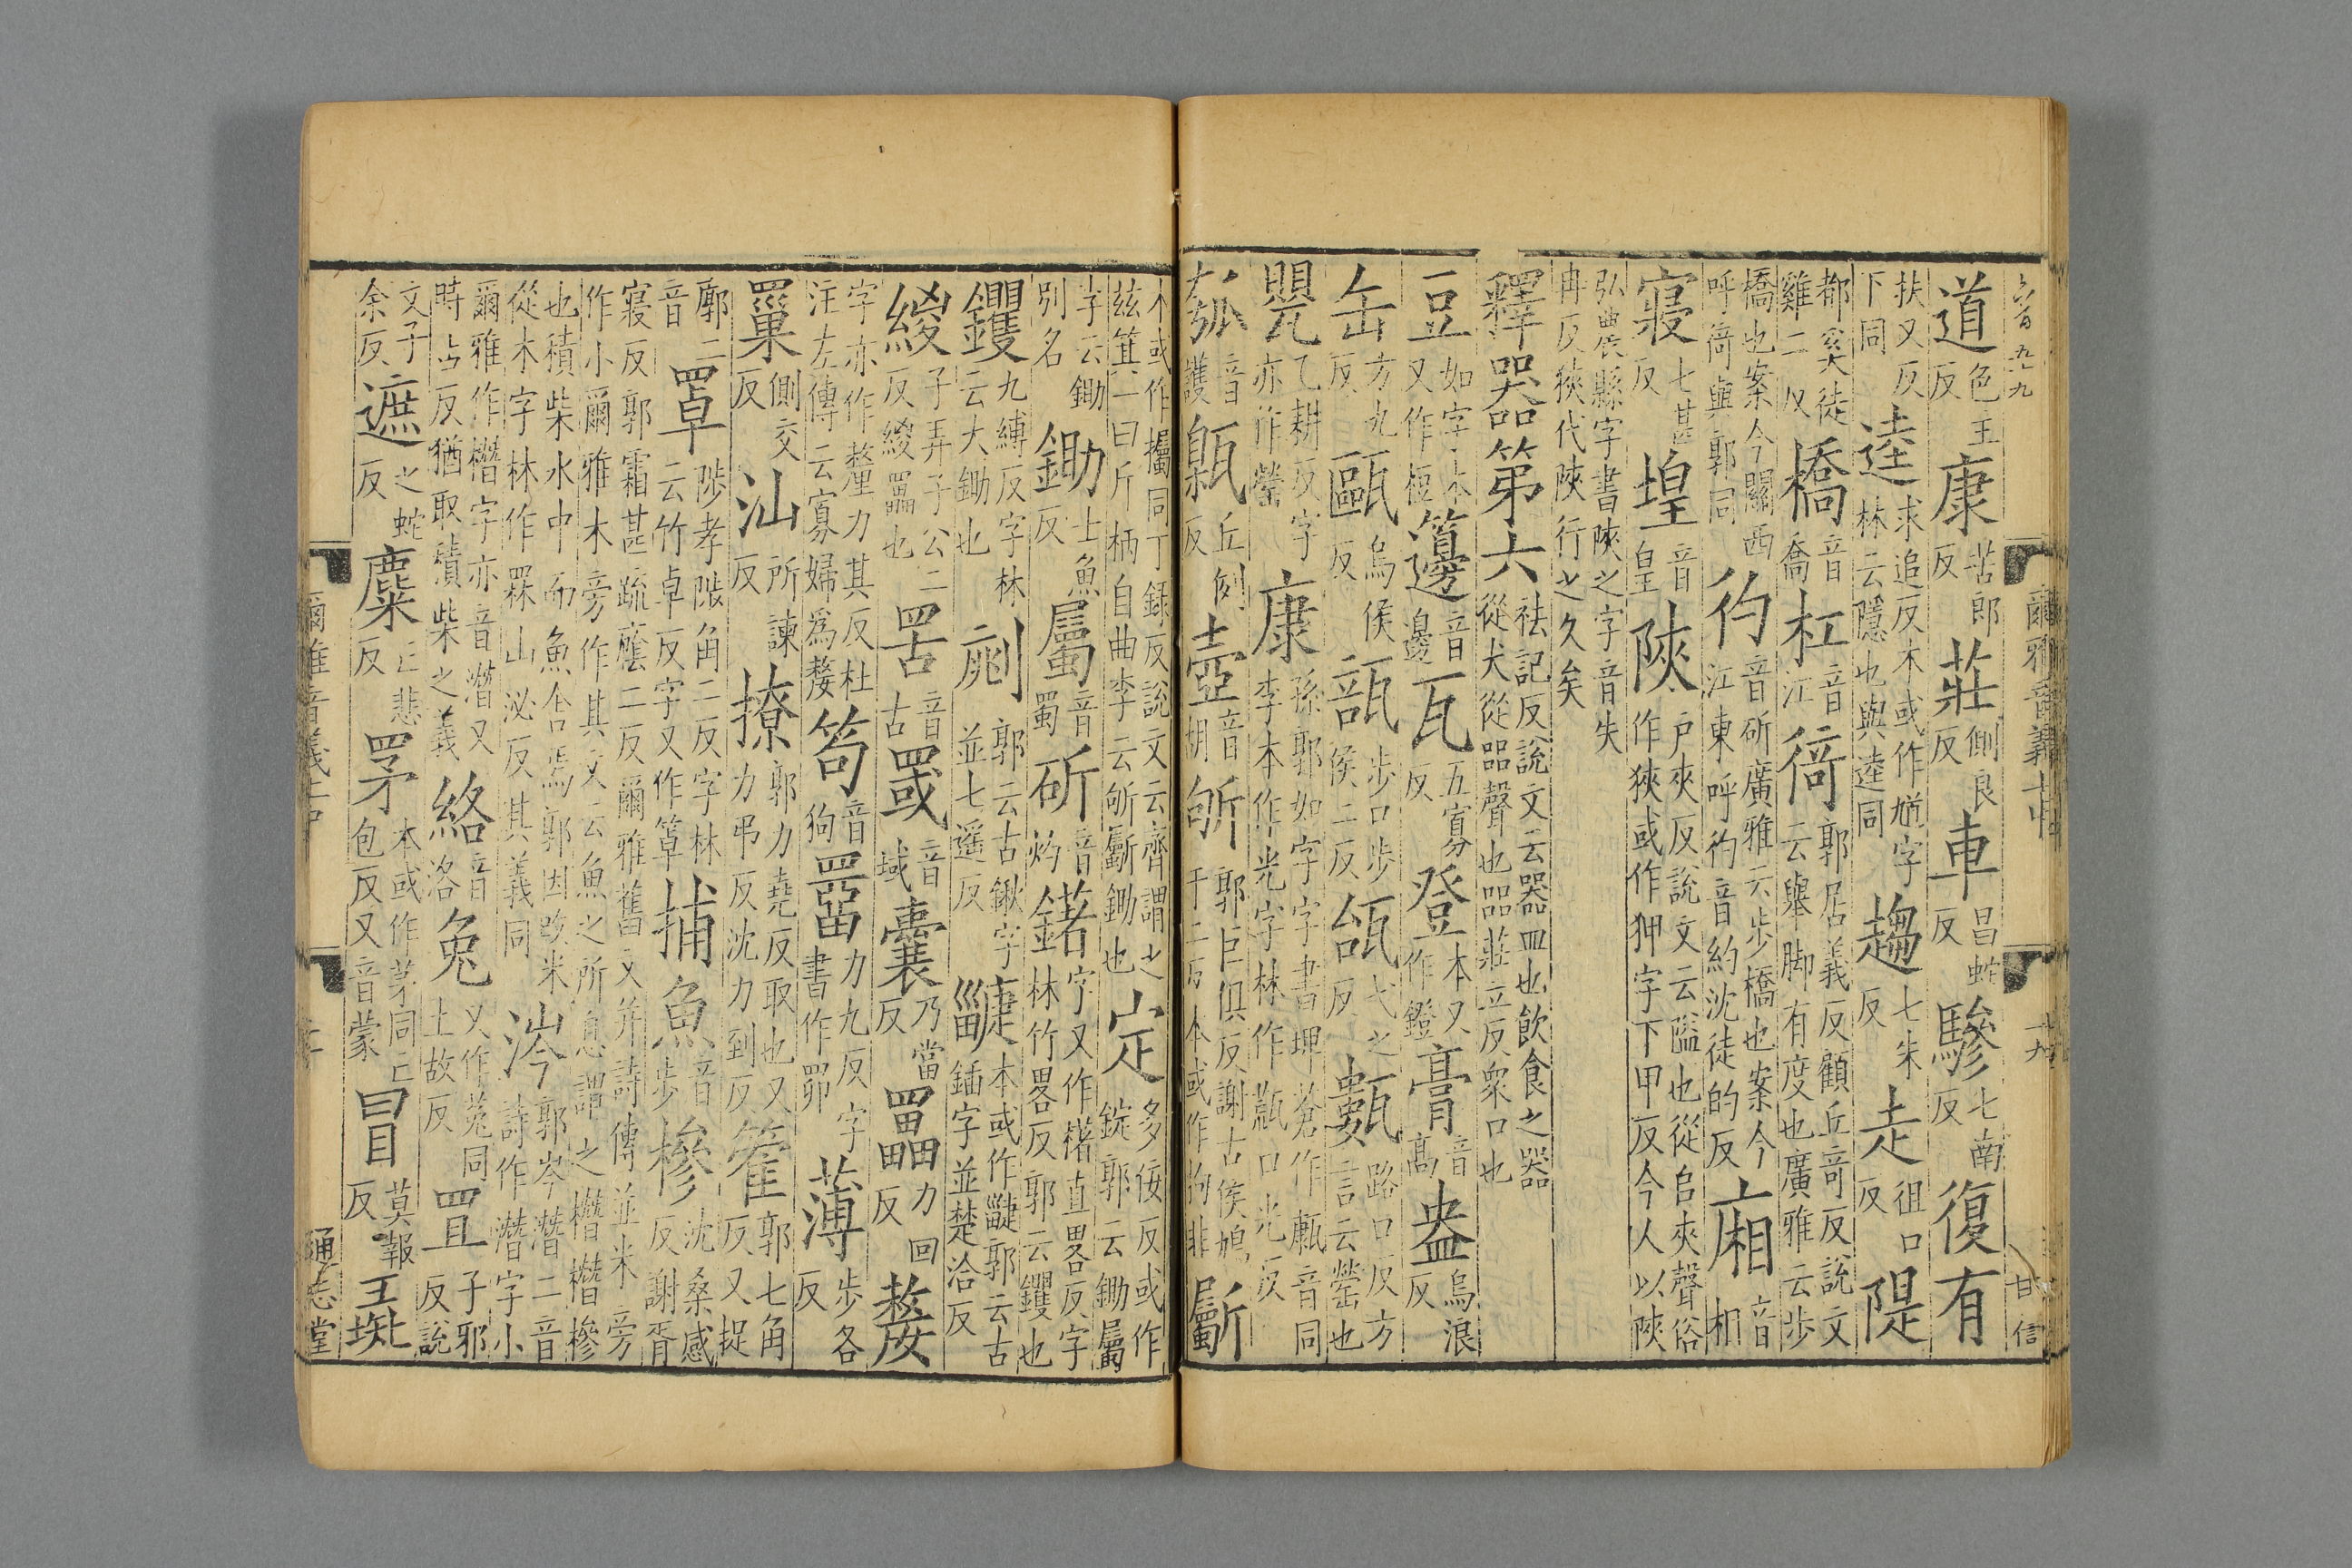 六百九十九 甘信
爾雅音義上中 十九
道色主反康苦郎反莊側良反車昌蛇反驂七南反復有
扶又反下同逵求追反本或作馗字林云隱也與逵同趨七朱反走徂口反隄
都奚徒雞二反橋音喬杠音江徛郭居義反顧丘奇反說文云舉脚有度也廣雅云步
橋也案今關西呼徛與郭同彴音斫廣雅云步橋也案今江東呼彴音約沈徒的反廂音相
寢七甚反堭音皇陝户夾反說文云隘也從𨸏夾聲俗作狹或作狎字下甲反今人以陝
弘農縣字書陝之字音失冉反狹代陝行之久矣
釋器第六祛記反說文云器皿也飲食之器從犬從㗊聲也㗊莊立反衆口也
豆如字本又作梪籩音邊瓦五寡反登本又作鐙膏音高盎烏浪反
缶方九反甌烏侯反瓿步口步侯二反瓵弋之反甊路口反方言云罃也
甖乙耕反字亦作罃康孫郭如字字書埤蒼作㼹音同李本作光字林作㼹口光反
瓠音護甈丘例反壺音胡斪郭巨俱反謝古侯鳩于二反本或作拘非斸
本或作欘同丁錄反說文云齊謂之茲箕一曰斤柄自曲李云斪斸鋤也定多佞反或作錠郭云鋤屬
字云鋤別名鋤士魚反屬音蜀斫音灼鍩字又作楮直畧反字林竹畧反郭云钁也
钁九縛反字林云大鋤也𣂁郭云古鍬字並七遥反疀本或作𣂁郭云古鍤字並楚洽反
緵子弄子公二反緵罟也罟音古罭音域囊乃當反罍力回反嫠
字亦作釐力其反杜注左傳云寡婦為嫠笱音狗罶力九反字書作罶薄步各反
巢側交反汕所諫反撩郭力堯反取也又力弔反沈力到反籗郭七角反又捉
廓二音罩陟孝陟角二反字林云竹卓反字又作箄捕魚音步槮沈桑感反謝胥
寢反郭霜甚疏廕二反爾雅舊文并詩傳並米旁作小爾雅木旁作其文云魚之所息謂之橬橬槮
也積柴水中而魚舍焉郭因改米從木字林作罧山泌反其義同涔郭岑潛二音詩作潛字小
爾雅作橬字亦音潛又時占反猶取積柴之義絡音洛兔又作菟同土故反罝子邪反說
文子余反遮之蛇反麋亡悲反罞本或作茅同亡包反又音蒙冒莫報反彘
爾雅音義上中 二十
通志堂